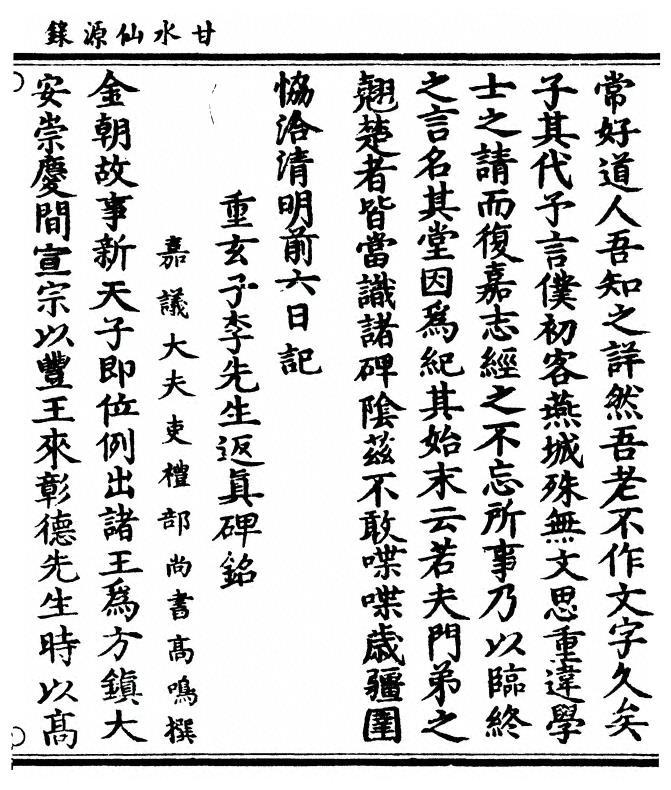 甘水仙源錄
常好道人吾知之詳然吾老不作文字久矣
子其代予言僕初客燕城殊無文思重違學
士之請而復嘉志經之不忘所事乃以臨終
之言名其堂因為紀其始末云若夫門弟之
翹楚者皆當識諸碑陰茲不敢喋喋歲彊圉
協洽清明前六日記
重玄子李先生返眞碑銘
嘉議大夫吏禮部尚書高鳴撰
金朝故事新天子即位例出諸王為方鎮大
安崇慶間宣宗以豐王來彰德先生時以高